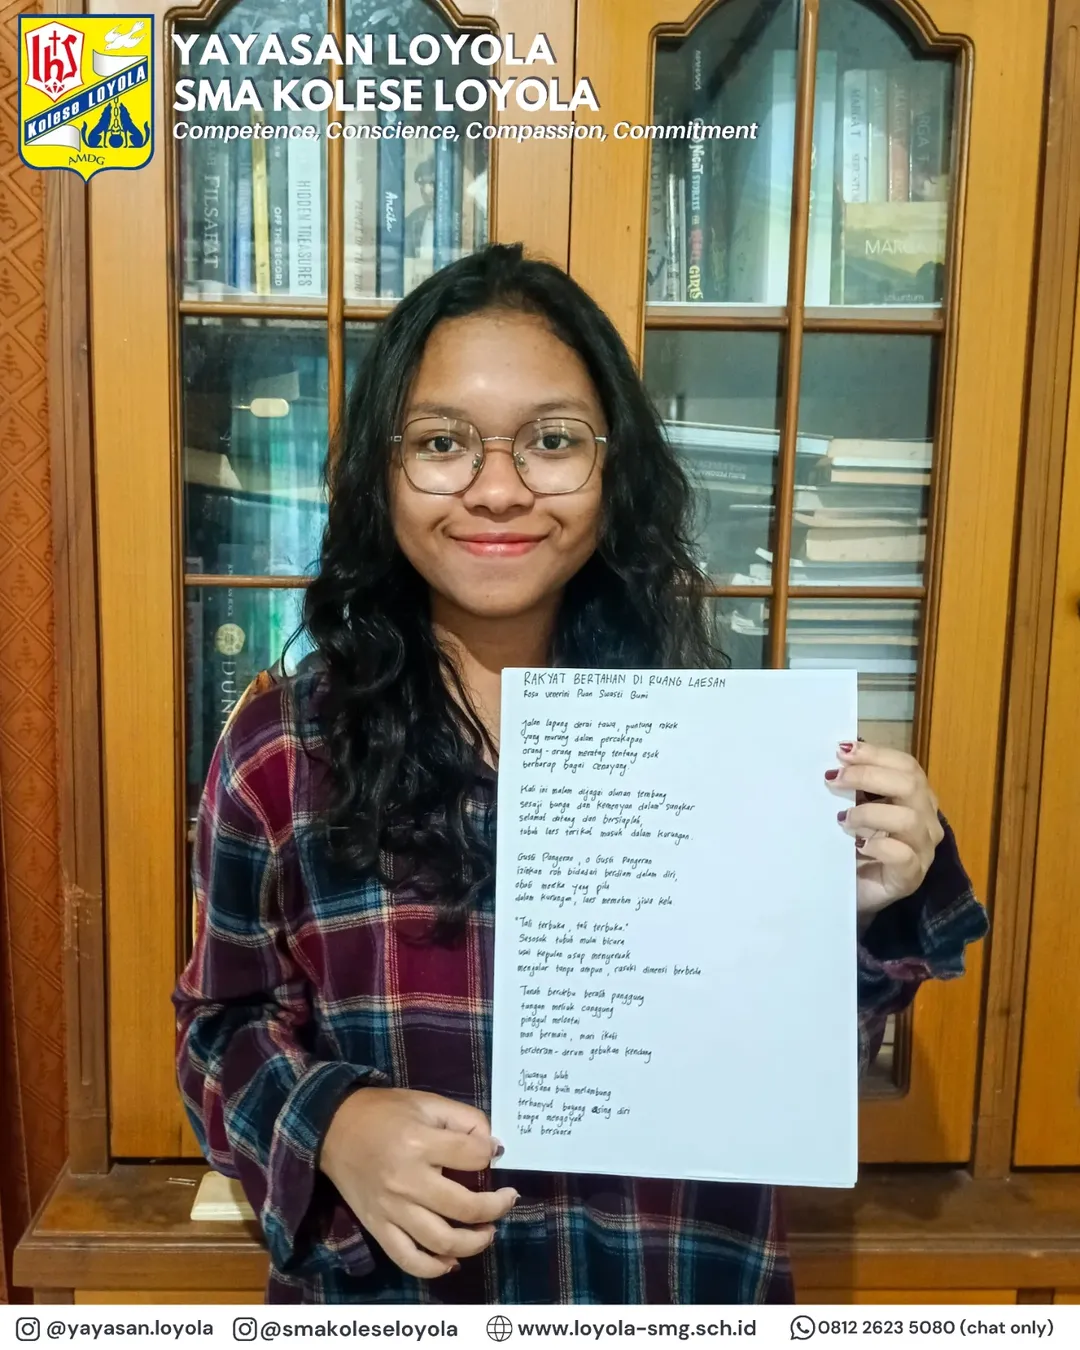 YAYASAN LOYOLA
SMA KOLESE LOYOLA
Competence, Conscience, Compassion, Commitment
IHS
Kolese LOYOLA
AMDG
FILSAFAT
OFF THE RECORD
HIDDEN TREASURES
Ancika
GIRLS
MARGA
DUN
RAKYAT BERTAHAN DI RUANG LAESAN
Rosa Venerini Puan Swasti Bumi
Jalan lapang derai tawa, puntung rokok
yang murung dalam percakapan
orang-orang meratap tentang esok
berharap bagai cenayang.
Kali ini malam dijagai alunan tembang
sesaji bunga dan kemenyan dalam sangkar
selamat datang dan bersiaplah,
tubuh laes terikat masuk dalam kurungan.
Gusti Pangeran, o Gusti Pangeran
izinkan roh bidadari berdiam dalam diri,
obati mereka yang pilu
dalam kurungan, laes memohon jiwa
"Tali terbuka, tali terbuka."
Sesosok tubuh mulai bicara
usai kepulan asap menyeruak
menjalar tanpa ampun, rasuki dimensi berbeda
Tanah berdebu beralih panggung
tangan meliuk canggung
pinggul melantai
mari bermain, mari ikuti
berderam-derum gebukan kendang
Jiwanya luluh
laksana buih melambung
terhanyut bayang asing diri
hampa mengoyak
'tuk bersuara
@yayasan.loyola
@smakoleseloyola
www.loyola-smg.sch.id
0812 2623 5080 (chat only)